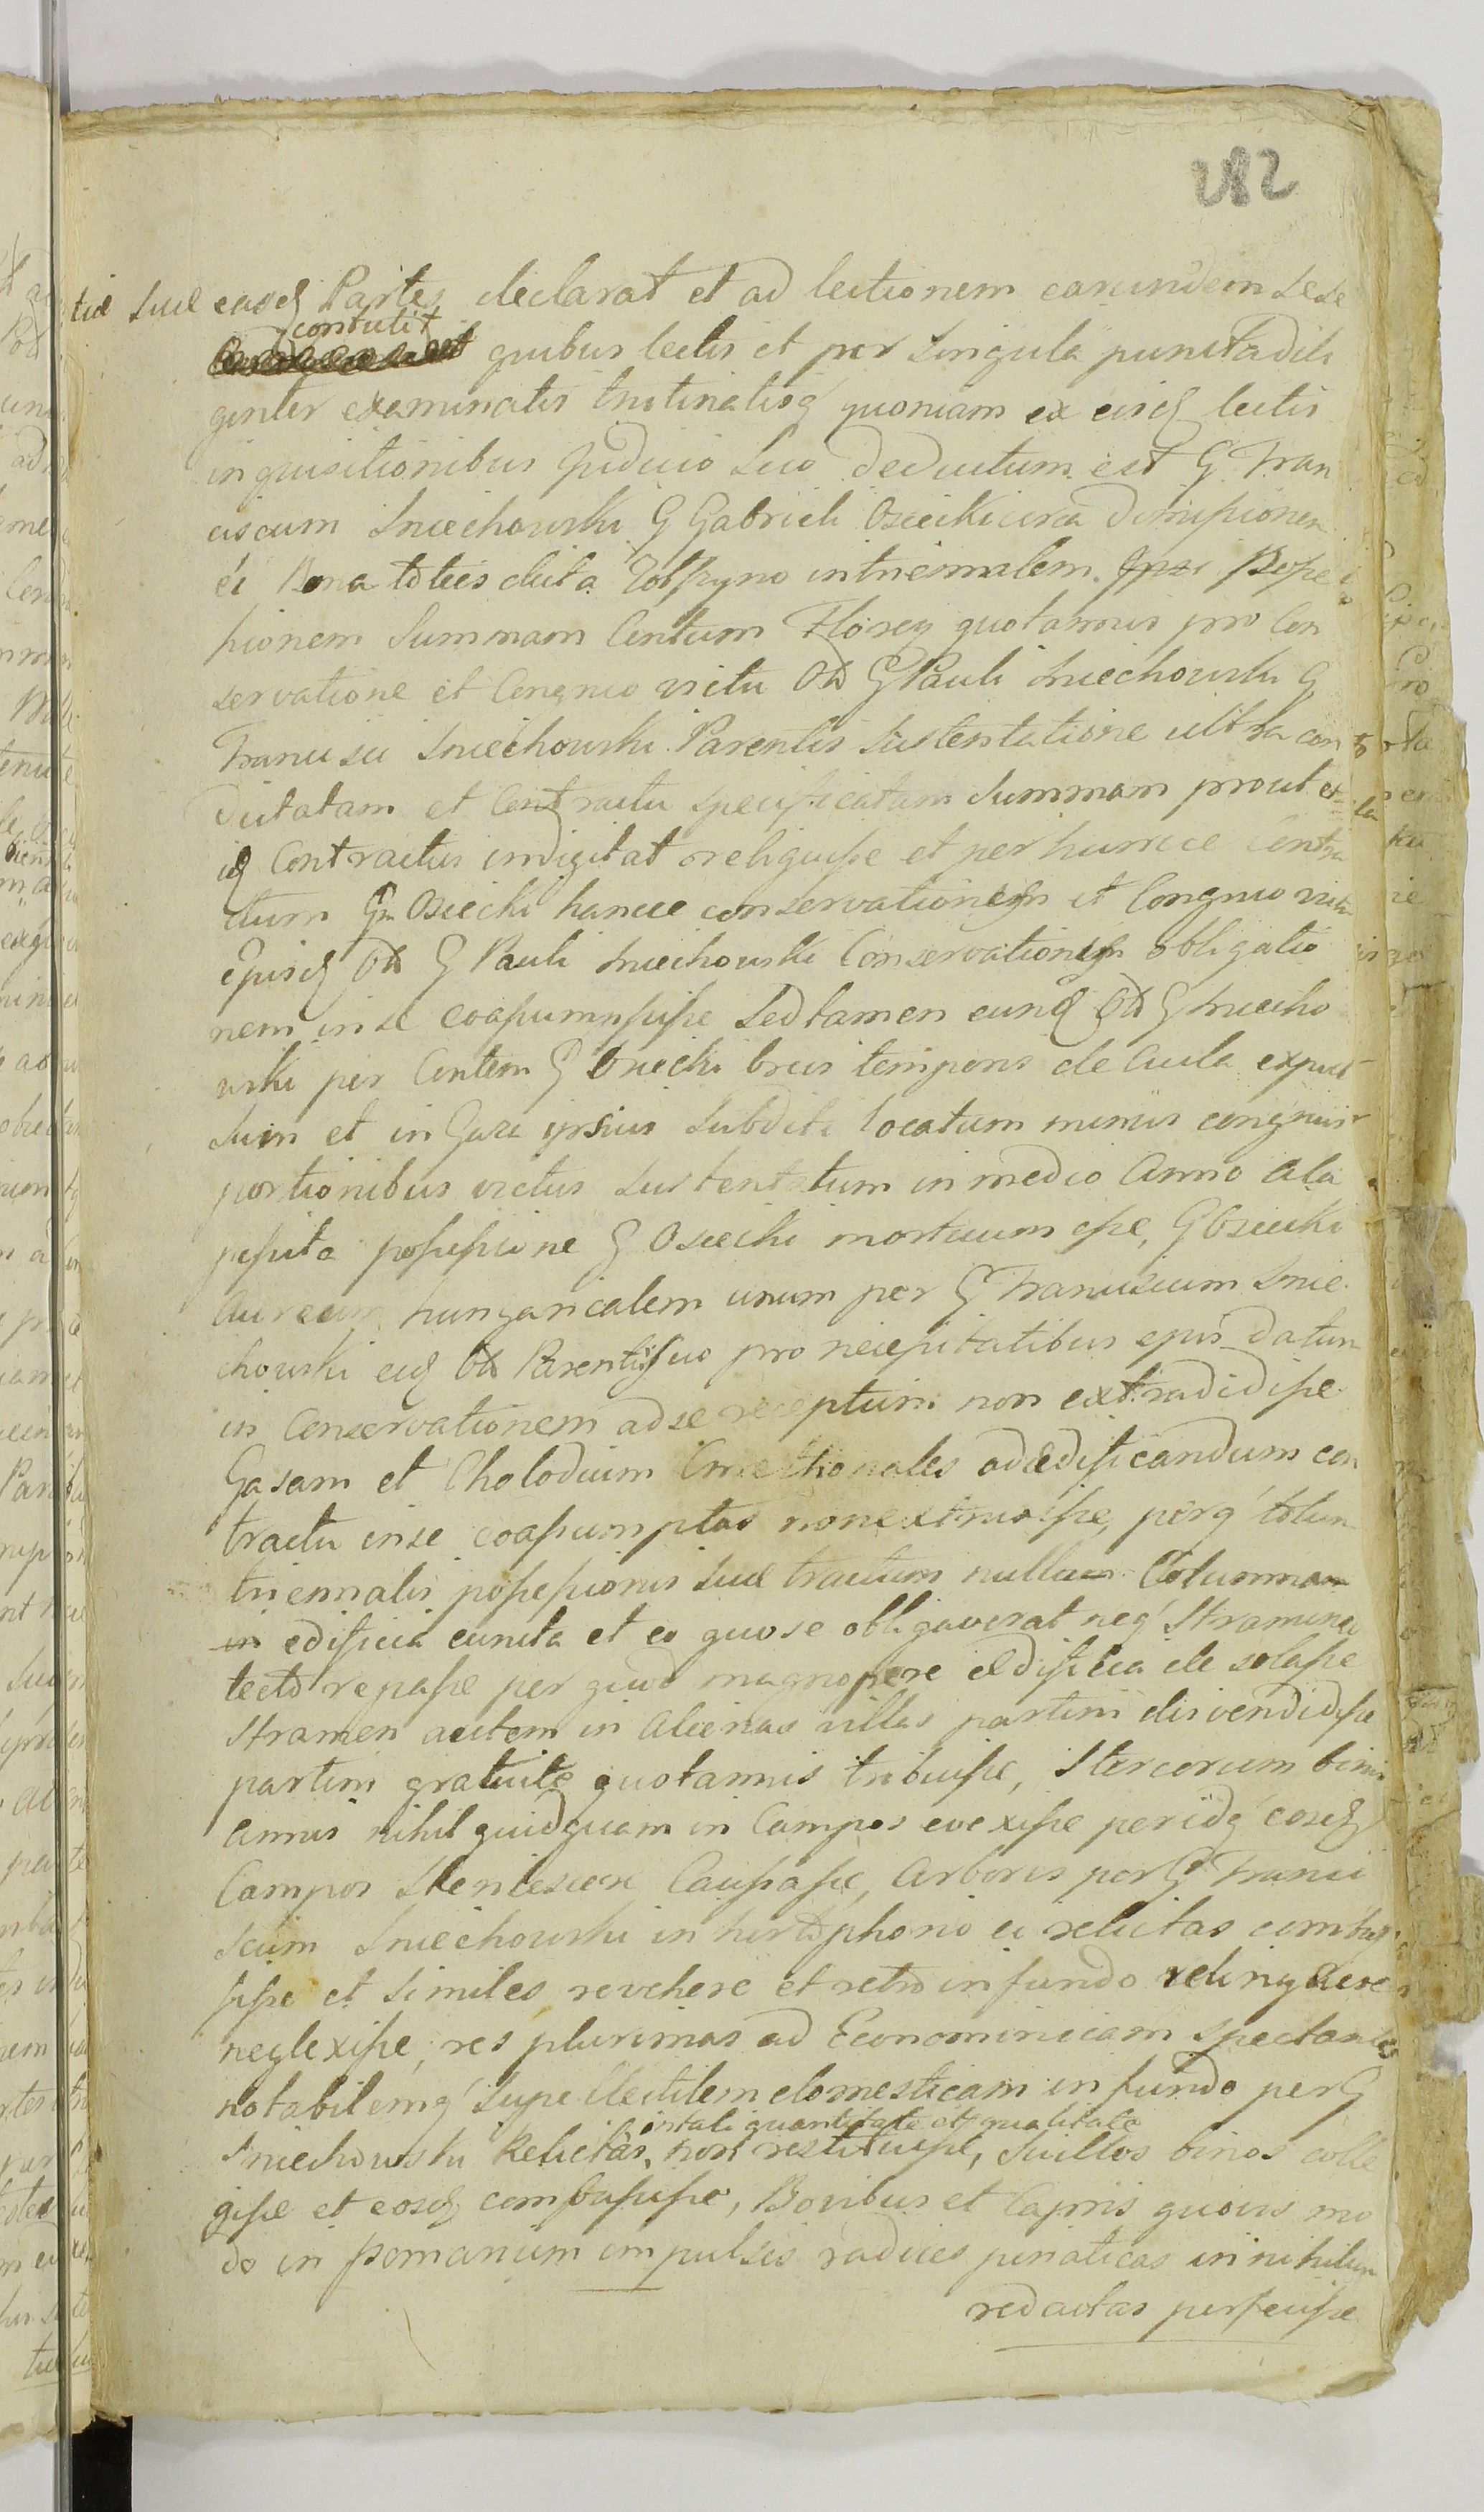 282
tiæ suæ easq Partes declarat et ad lectionem earundem sese
contulit
quibus lectis et per singula puncta dili
genter examinatis trutinatisq quoniam ex eisq lectis
inquisitionibus Judicio suo deductum est G Fran
ciscum Sniechowski G Gabrieli Osiecki circa dimissionem
ei Bona toties dicta in triennalem Posse
ssionem Summam Centum Floreny quotannis pro Con
servatione et Congruo victu Od G Pauli Sniechowski G
Francisci Sniechowski Parentis sustentatione ultra con
dictatam et Contractu specificatam Summam prout et
iq Contractus indigitat reliquisse et per huncce Contra
ctum Gm Osiecki hancce conservationem et Congruo victu
ejusq Od G Pauli Sniechowski Conservationem obligatio
nem in se coassumpsisse sed tamen eunq Od G Sniecho
wski per Contem G Osiecki brevis temporis de Aula expul
sum et in Gaza ipsius Subditi locatum minus congruis
portionibus victus sustentatum in medio Anno ala
possessione G Osiecki mortuum esse, G Osiecki
Aureum hungaricalem unum per G Franciscum Snie
chowski eiq Od Parenti suo pro necessitatibus ejus datum
in Conservationem ad se receptum non extradidisse
Gasam et Cholodium ad ædificandum con
tractu in se coassumptas non extruxisse, perq totum
triennalis possessionis suæ tractum nullam Columnam
in edificia cuncta et eo quo se obligaverat neq Straminea
tecto repasse per quod magnopere ædificia de solasse
Stramen autem in alienas villas partim divendidisse
partim gratuite quotannis tribuisse, Stercorum binis
annis nihil quidquam in Campos evexisse peridq eosq
Campos Causasse, Arbores per G Franci
scum Sniechowski in ei relictas combus
sisse et similes revehere et retro in fundo relinquere
neglexisse, res plurimas ad Econominiam spectantes
notabilemq supellectilem domesticam in fundo per G
in tali quantitate et qualitate
Sniechowski Relictas, non restituisse, Suillos binos colle
gisse et eosq , Bovibus et Capris quovis mo
do in pomarium impulsis radices in nihilum
redactas perfecisse